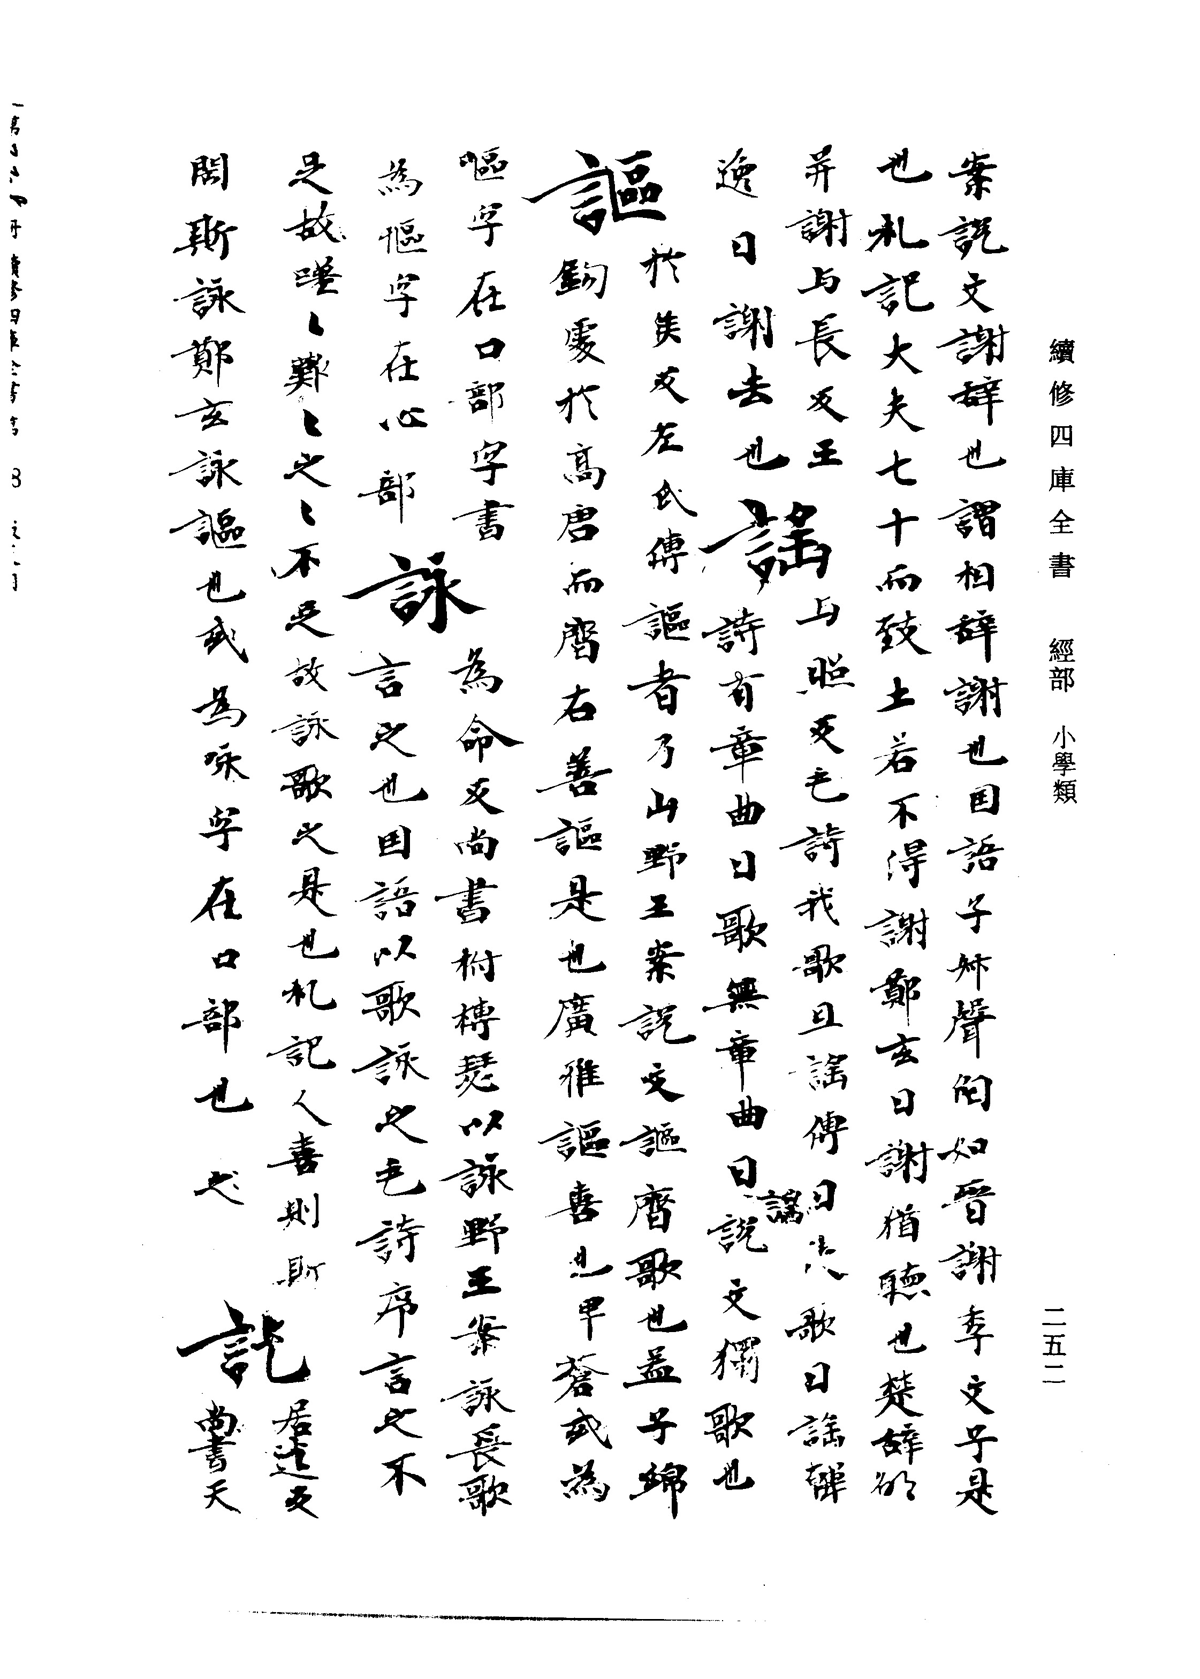 續修四庫全書 經部 小學類
二五二
案說文謝辭也謂相辭謝也国語子姉聲伯如晉謝季文子是
也礼記大夫七十而致土若不得謝鄭玄曰謝猶聴也楚辞
并謝与長反王
逸曰謝去也
謡
与照反毛詩我歌且謡傳曰徒歌曰謡韓
詩有章曲曰歌無章曲曰謡說文獨歌也
謳
於侯反左氏傳謳者乃止野王案說文謳齊歌也孟子綿
駒處於高唐而齊右善謳是也廣雅謳喜也甲蒼或為
嘔字在口部字書
為慪字在心部
詠
為命反尚書拊榑瑟以詠野王案詠長歌
言之也国語以歌詠之毛詩序言之不
足故嗟〻難〻之〻不足故詠歌之是也礼記人喜則斯
陶斯詠鄭玄詠謳也或為咏字在口部也 之
訖
居迄反
尚書天